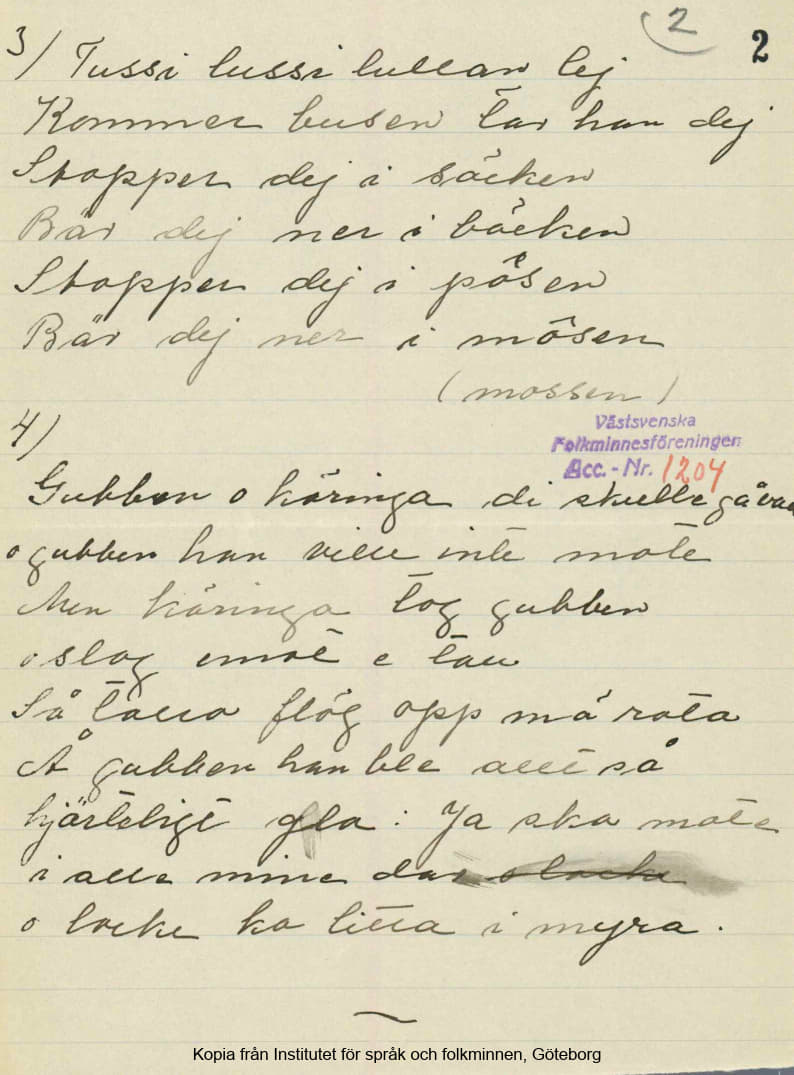 2 2
3/ Tussi lussi lullan lej
Kommer busen tar han dej
Stopper dej i säcken
Bär dej ner i bäcken
Stopper dej i påsen
Bär dej ner i måsen
(mossen)
4/
Västsvenska
Folkminnesföreningen
Acc.-Nr. 1204
Gubben o käringa di skulle gå
o gubben han ville inte mote
Men käringa tog gubben
o slog emot e tall
Så talla flög opp må rota
Å gubben han ble allt så
hjärteligt gla: Ja ska mote
i alle mine dar o locke
o locke ko lilla i myra.
Kopia från Institutet för språk och folkminnen, Göteborg